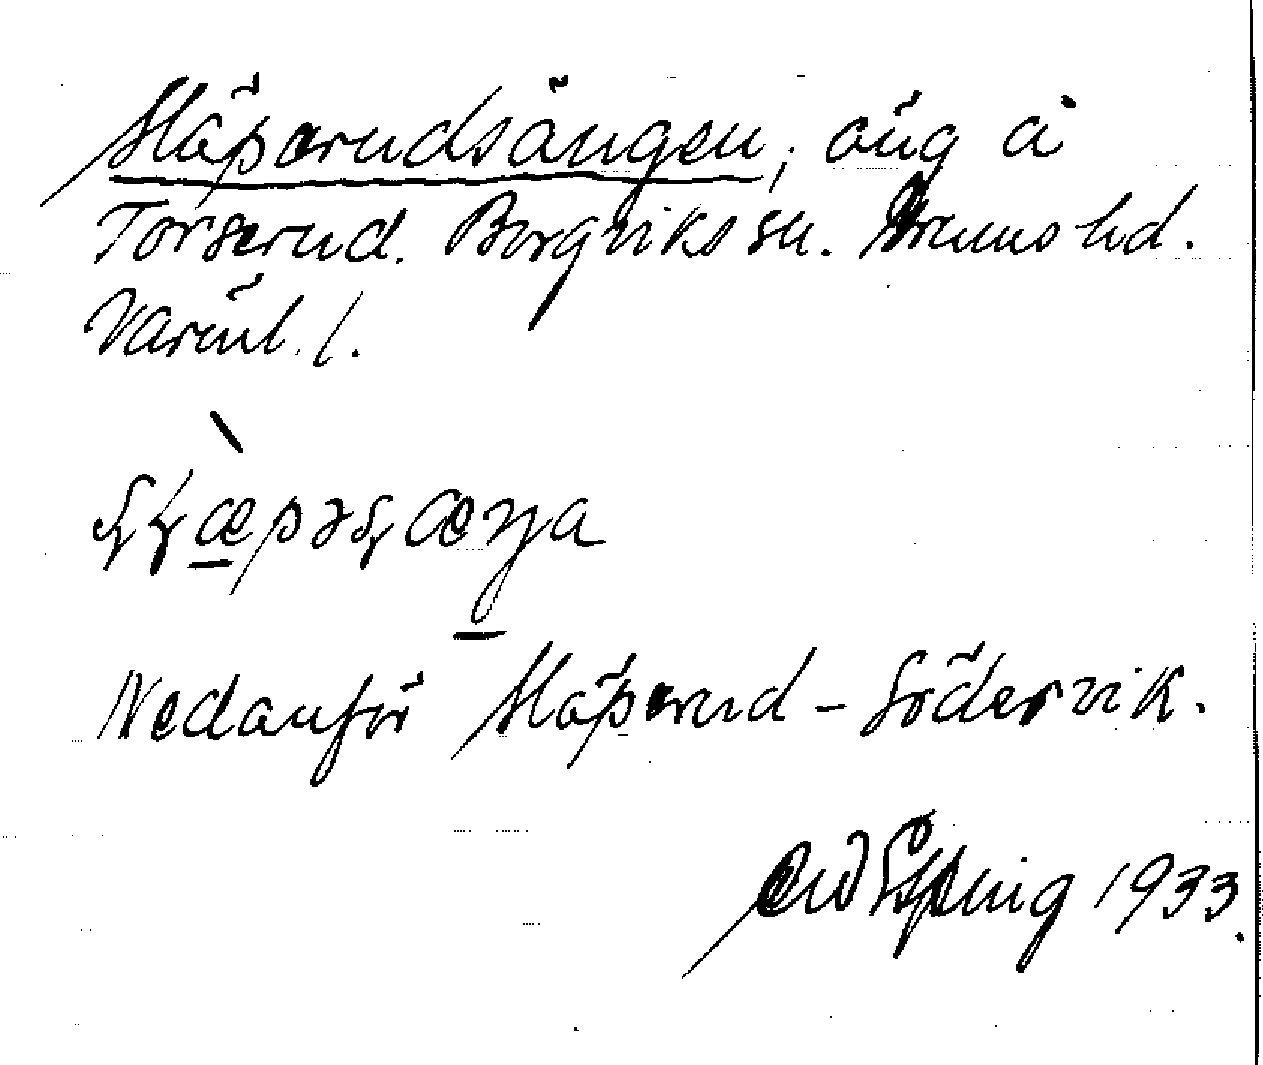 Släpærudsängen; äng å
Torserud. Borgviks sn. Grums hd.
Värml. l.
Nedanför Släpærud – Södervik.
1933.